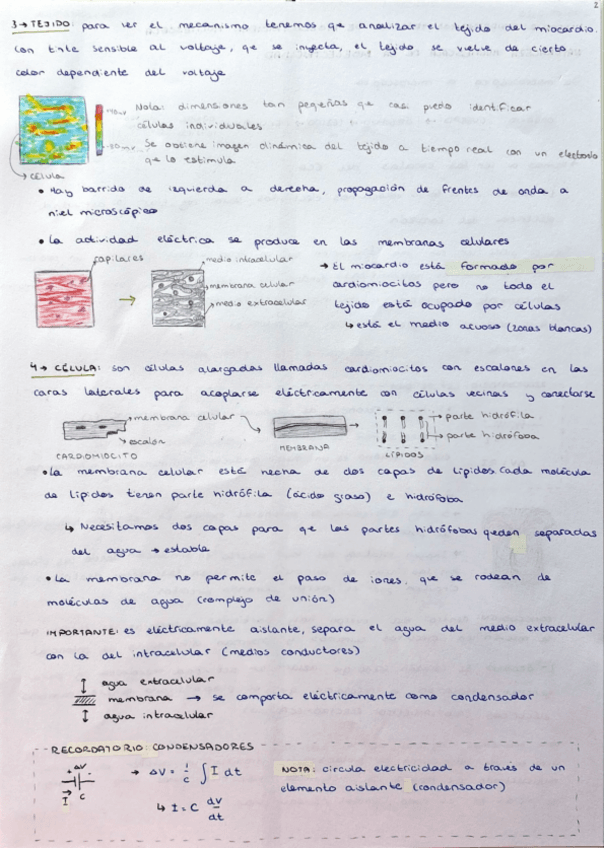 2
3→ TEJIDO: para ver el mecanismo tenemos qe analizar el tejido del miocardio.
Con tinte sensible al voltaje, qe se inyecta, el tejido se vuelve de cierto
color dependiente del voltaje
Nota: dimensiones tan pequeñas qe casi puedo identificar
células individuales
Se obtiene imagen dinámica del tejido a tiempo real con un electrodo
qe lo estimula
célula
• Hay barrido de izquierda a derecha, propagación de frentes de onda a
nivel microscópico
• La actividad eléctrica se produce en las membranas celulares
capilares
medio intracelular
membrana celular
medio extracelular
→ El miocardio está formado por
cardiomiocitos pero no todo el
tejido está ocupado por células
↳ está el medio acuoso (zonas blancas)
4→ CÉLULA: son células alargadas llamadas cardiomiocitos con escalones en las
caras laterales para acoplarse eléctricamente con células vecinas y conectarse
membrana celular
escalón
CARDIOMIOCITO
MEMBRANA
LÍPIDOS
parte hidrófila
parte hidrófoba
• La membrana celular está hecha de dos capas de lípidos. Cada molécula
de lípidos tienen parte hidrófila (ácido graso) e hidrófoba
↳ Necesitamos dos capas para qe las partes hidrófobas queden separadas
del agua → estable
• La membrana no permite el paso de iones, que se rodean de
moléculas de agua (complejo de unión)
IMPORTANTE: es eléctricamente aislante, separa el agua del medio extracelular
con la del intracelular (medios conductores)
↕ agua extracelular
membrana → se comporta eléctricamente como condensador
↕ agua intracelular
RECORDATORIO CONDENSADORES
+ ΔV -
I C
→ ΔV = 1/C ∫ I dt
↳ I = C dV/dt
NOTA: circula electricidad a través de un
elemento aislante (condensador)